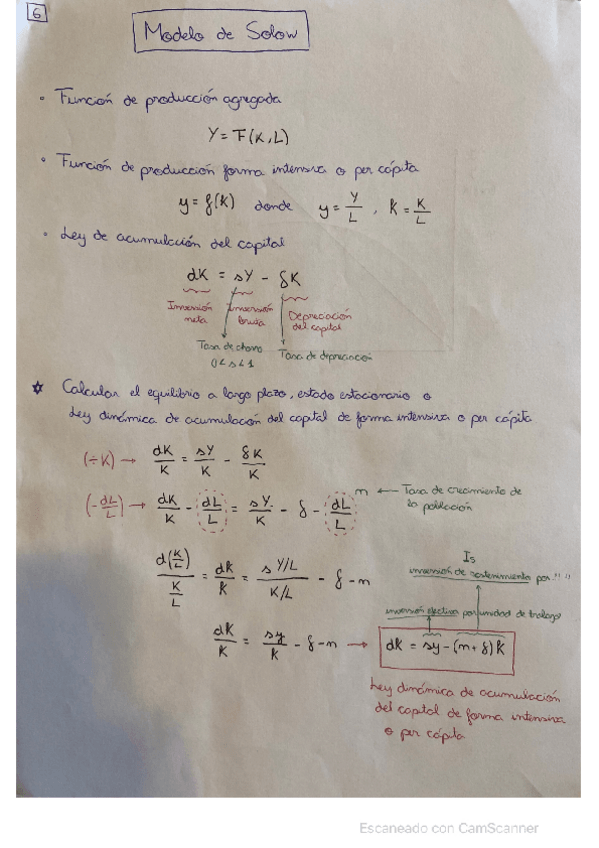 6
Modelo de Solow
• Función de producción agregada
Y = F(K, L)
• Función de producción forma intensiva o per cápita
y = f(k) donde y = Y/L , k = K/L
• Ley de acumulación del capital
dK = sY - δK
Inversión neta
Inversión bruta
Depreciación del capital
Tasa de ahorro
0<s<1
Tasa de depreciación
✡ Calcular el equilibrio a largo plazo, estado estacionario o
Ley dinámica de acumulación del capital de forma intensiva o per cápita
(÷K) → dK/K = sY/K - δK/K
(-dL/L) → dK/K - dL/L = sY/K - δ - dL/L
n ← Tasa de crecimiento de
la población
d(K/L)/(K/L) = dk/k = s Y/L / K/L - δ - n
Is
inversión de sostenimiento por " "
inversión efectiva por unidad de trabajo
dk/k = sy/k - δ - n → dk = sy - (n + δ)k
Ley dinámica de acumulación
del capital de forma intensiva
o per cápita
Escaneado con CamScanner